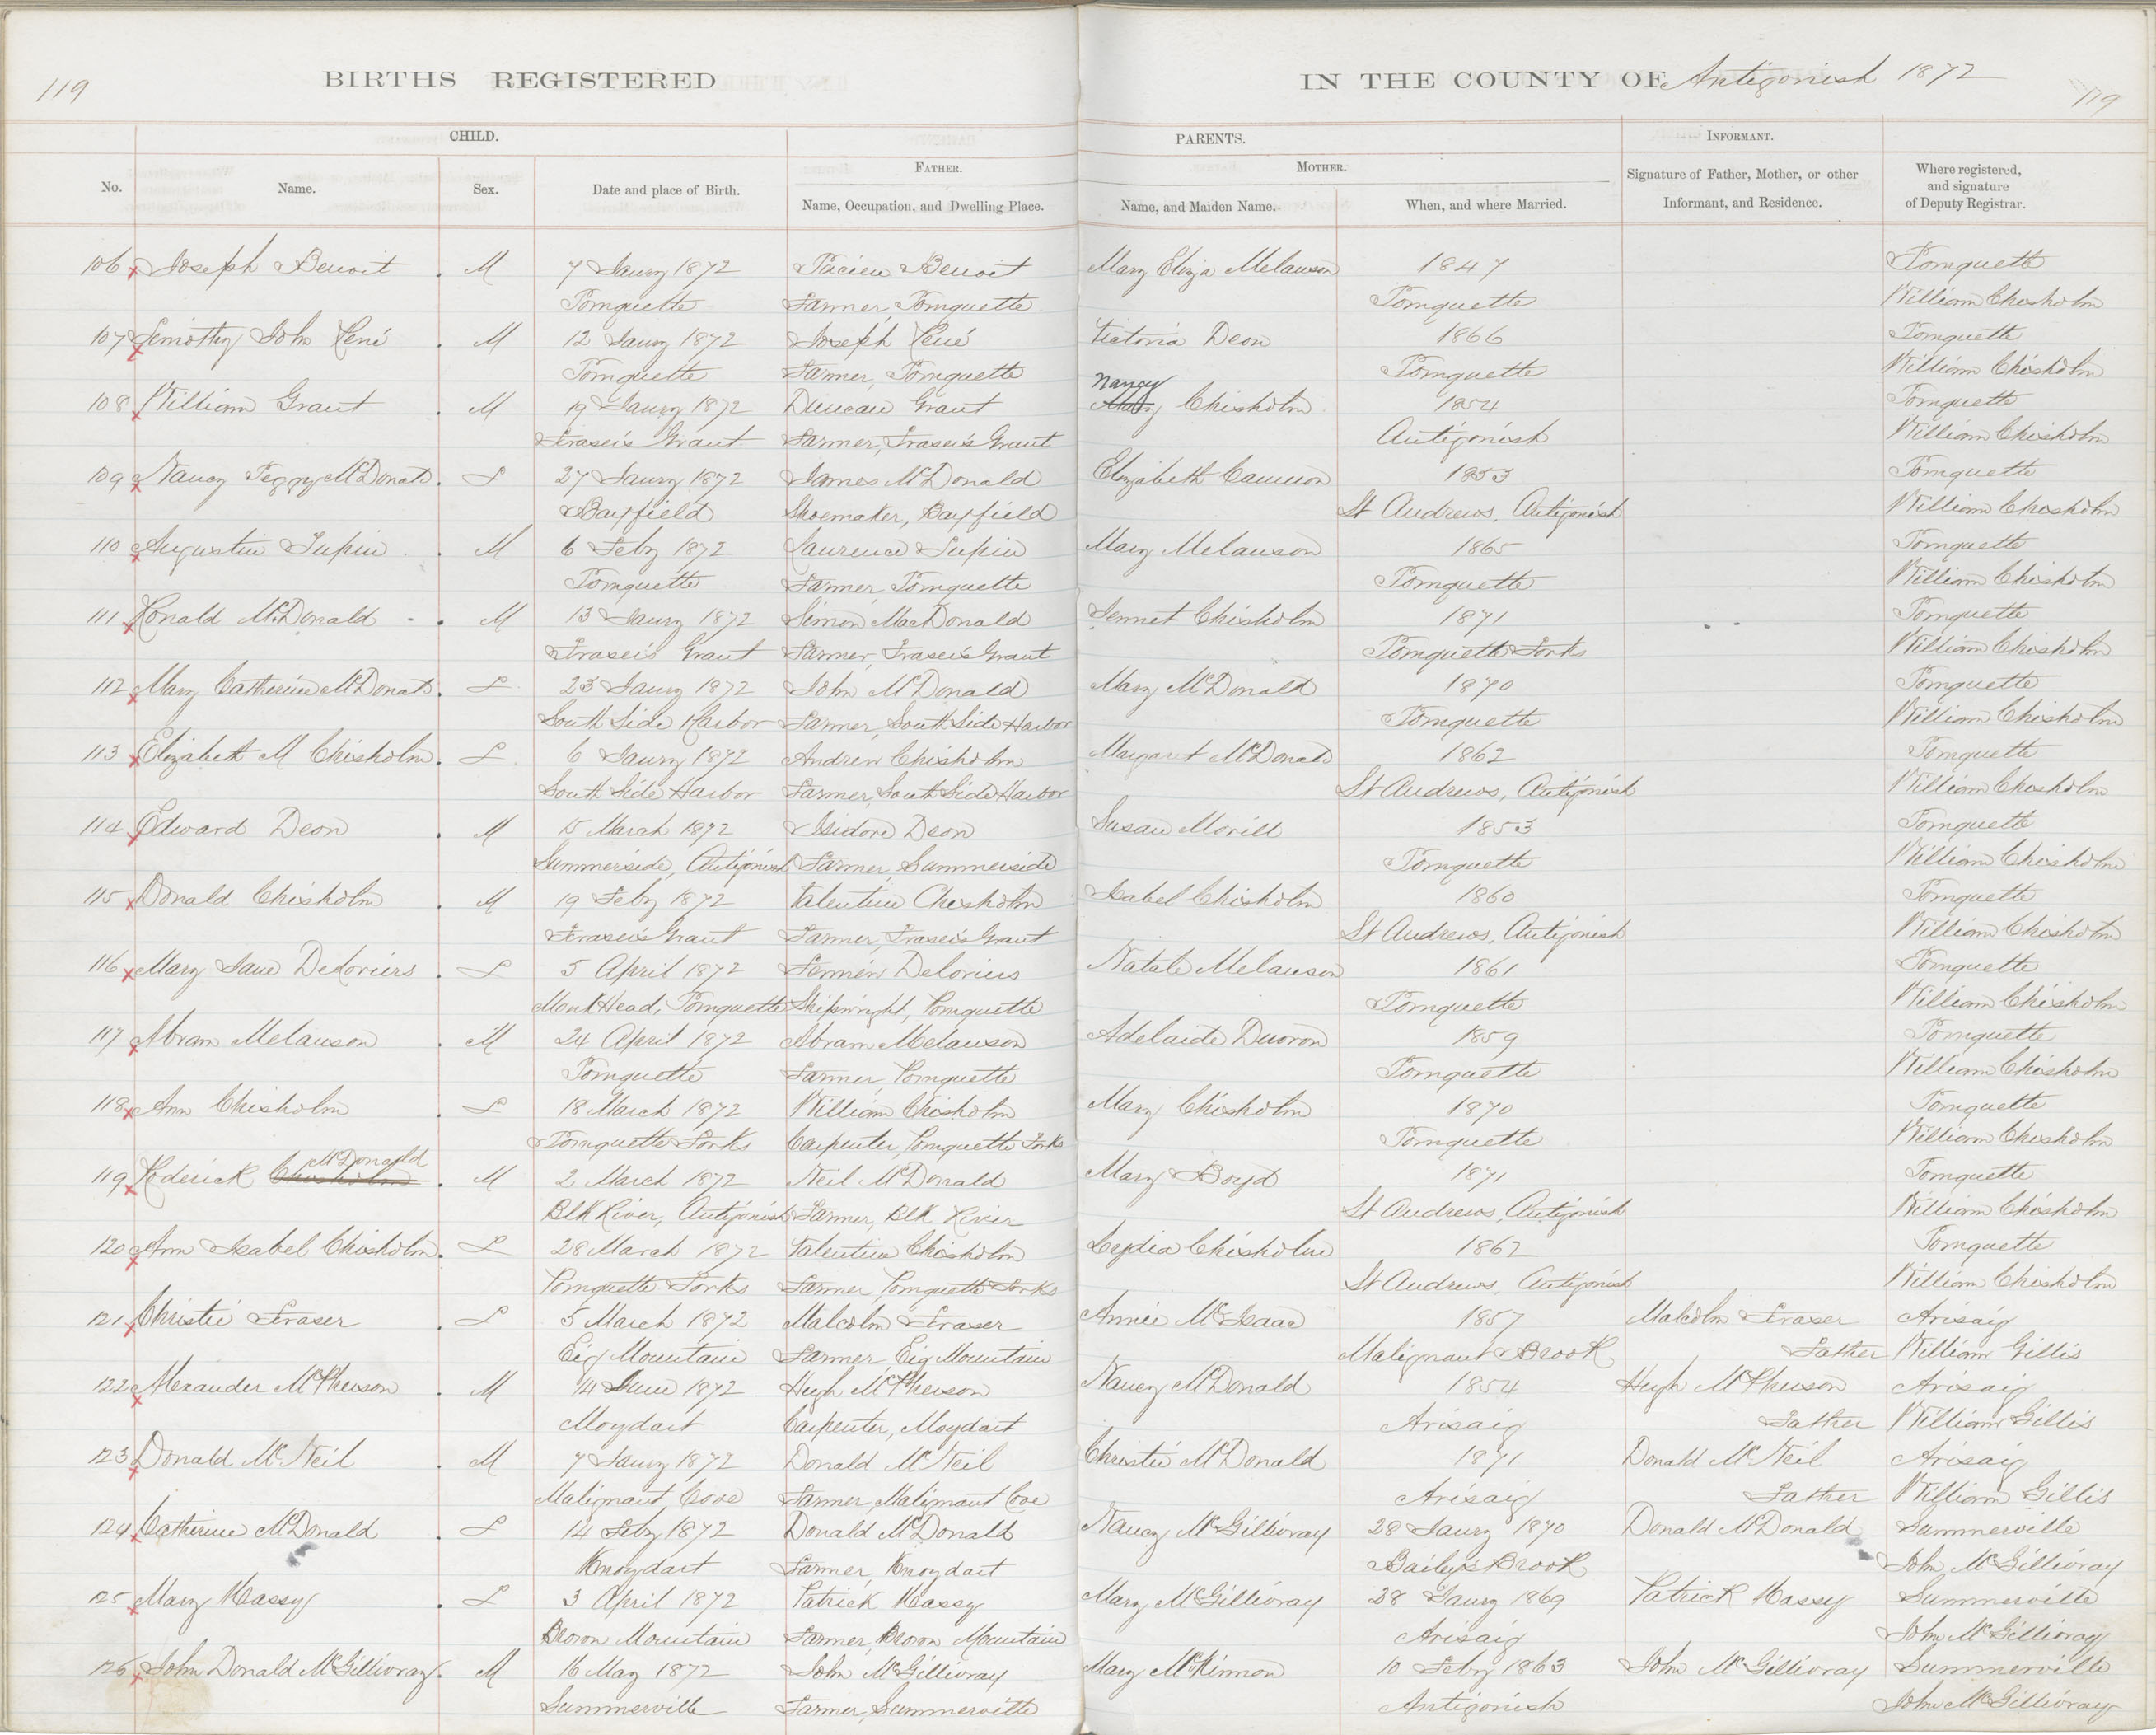 119
BIRTHS REGISTERED IN THE COUNTY OF Antigonish 1872
119
CHILD. PARENTS. INFORMANT.
FATHER. MOTHER.
No. Name. Sex. Date and place of Birth. Name, Occupation, and Dwelling Place. Name, and Maiden Name. When, and where Married. Signature of Father, Mother, or other Informant, and Residence. Where registered, and signature of Deputy Registrar.
106 Joseph Benoit M 7 Jaury 1872 Benoit Mary Eliza Melanson 1847 Pomquette
Pomquette Farmer, Pomquette Pomquette William Chisholm
107 Timothy John René M 12 Jaury 1872 Joseph René Victoria Deon 1866 Pomquette
Pomquette Farmer, Pomquette Pomquette William Chisholm
108 William Grant M 19 Jaury 1872 Duncan Grant Nancy Chisholm 1854 Pomquette
Fraser's Grant Farmer, Fraser's Grant Antigonish William Chisholm
109 Nancy Peggy McDonald F 27 Jaury 1872 James McDonald Elizabeth Cameron 1853 Pomquette
Bayfield Shoemaker, Bayfield St Andrews, Antigonish William Chisholm
110 Augustin M 6 Feby 1872 Laurence Mary Melanson 1865 Pomquette
Pomquette Farmer, Pomquette Pomquette William Chisholm
111 Ronald McDonald M 13 Jaury 1872 Simon MacDonald Jennet Chisholm 1871 Pomquette
Fraser's Grant Farmer, Fraser's Grant Pomquette Forks William Chisholm
112 Mary Catherine McDonald F 23 Jaury 1872 John McDonald Mary McDonald 1870 Pomquette
South Side Harbor Farmer, South Side Harbor Pomquette William Chisholm
113 Elizabeth M Chisholm F 6 Jaury 1872 Andrew Chisholm Margaret McDonald 1862 Pomquette
South Side Harbor Farmer, South Side Harbor St Andrews, Antigonish William Chisholm
114 Edward Deon M 15 March 1872 Isidore Deon Susan Morill 1853 Pomquette
Summerside, Antigonish Farmer, Summerside Pomquette William Chisholm
115 Donald Chisholm M 19 Feby 1872 Valentine Chisholm Isabel Chisholm 1860 Pomquette
Fraser's Grant Farmer, Fraser's Grant St Andrews, Antigonish William Chisholm
116 Mary Jane Deloriers F 5 April 1872 Firmin Deloriers Natale Melanson 1861 Pomquette
Monk Head, Pomquette Shipwright, Pomquette Pomquette William Chisholm
117 Abram Melanson M 24 April 1872 Abram Melanson Adelaide Duoron 1859 Pomquette
Pomquette Farmer, Pomquette Pomquette William Chisholm
118 Ann Chisholm F 18 March 1872 William Chisholm Mary Chisholm 1870 Pomquette
Pomquette Forks Carpenter, Pomquette Forks Pomquette William Chisholm
119 Roderick Chisholm McDonald M 2 March 1872 Neil McDonald Mary Boyd 1871 Pomquette
Blk River, Antigonish Farmer, Blk River St Andrews, Antigonish William Chisholm
120 Ann Isabel Chisholm F 28 March 1872 Valentine Chisholm Lydia Chisholm 1862 Pomquette
Pomquette Forks Farmer, Pomquette Forks St Andrews, Antigonish William Chisholm
121 Christie Fraser F 5 March 1872 Malcolm Fraser Annie McIsaac 1857 Malcolm Fraser Arisaig
Eig Mountain Farmer, Eig Mountain Malignant Brook Father William Gillis
122 Alexander McPherson M 14 June 1872 Hugh McPherson Nancy McDonald 1854 Hugh McPherson Arisaig
Moydart Carpenter, Moydart Arisaig Father William Gillis
123 Donald McNeil M 7 Jaury 1872 Donald McNeil Christie McDonald 1871 Donald McNeil Arisaig
Malignant Cove Farmer, Malignant Cove Arisaig Father William Gillis
124 Catherine McDonald F 14 Feby 1872 Donald McDonald Nancy McGillivray 28 Jaury 1870 Donald McDonald Summerville
Knoydart Farmer, Knoydart Baileys Brook John McGillivray
125 Mary Kassy F 3 April 1872 Patrick Kassy Mary McGillivray 28 Jaury 1869 Patrick Kassey Summerville
Brown Mountain Farmer, Brown Mountain Arisaig John McGillivray
126 John Donald McGillivray M 16 May 1872 John McGillivray Mary McKinnon 10 Feby 1863 John McGillivray Summerville
Summerville Farmer, Summerville Antigonish John McGillivray